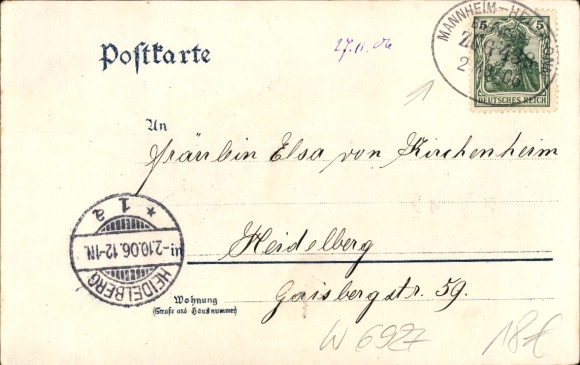 Postkarte
27.11.06
MANNHEIM-
ZUG
5
DEUTSCHES REICH
An
Fräulein Elsa von Kirchenheim
in
Heidelberg
Wohnung
(Straße und Hausnummer)
Gaisbergstr. 59.
HEIDELBERG
-2.10.06.12-1N.
* 1 a
W 6927
18€